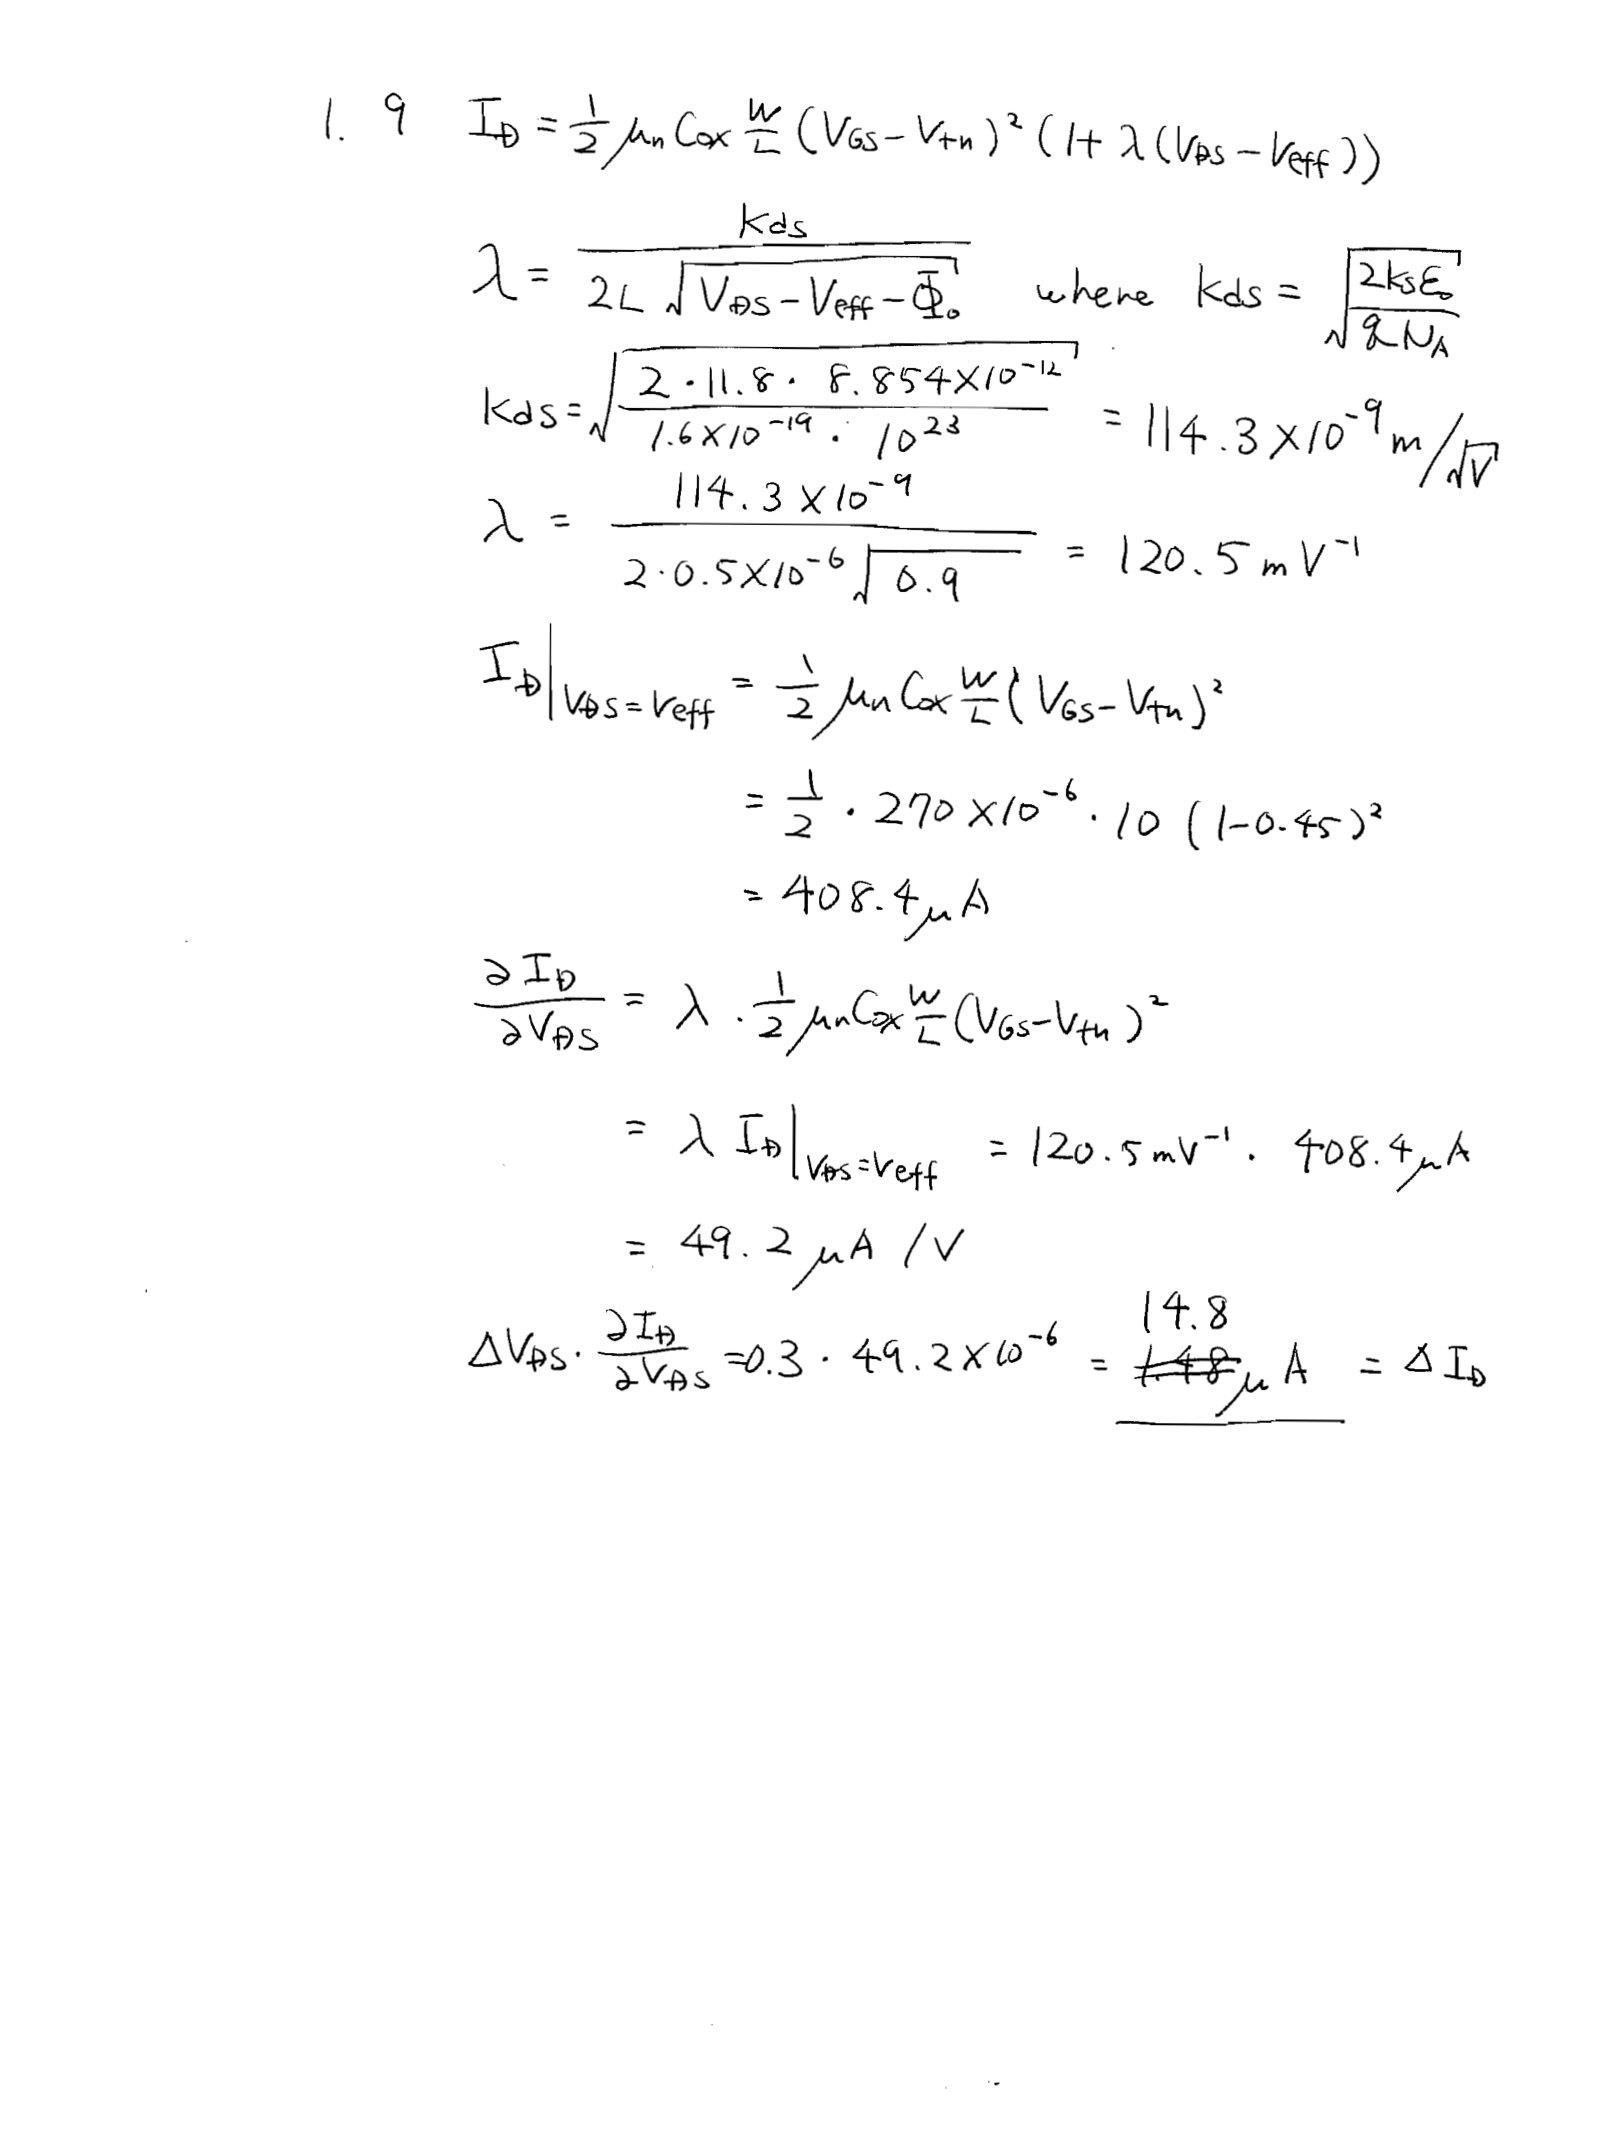 1. 9 I_D = 1/2 μn Cox W/L (VGS - Vtn)² (1 + λ (VDS - Veff))
λ = kds / 2L √(VDS - Veff - Φ₀) where kds = √(2ksε₀ / qNA)
kds = √(2 · 11.8 · 8.854×10⁻¹² / 1.6×10⁻¹⁹ · 10²³) = 114.3 × 10⁻⁹ m/√V
λ = 114.3 × 10⁻⁹ / 2·0.5×10⁻⁶ √0.9 = 120.5 m V⁻¹
I_D|VDS=Veff = 1/2 μn Cox W/L (VGS - Vtn)²
= 1/2 · 270 × 10⁻⁶ · 10 (1-0.45)²
= 408.4 μA
∂I_D / ∂VDS = λ · 1/2 μn Cox W/L (VGS - Vtn)²
= λ I_D|VDS=Veff = 120.5 mV⁻¹ · 408.4 μA
= 49.2 μA / V
ΔVDS · ∂I_D / ∂VDS = 0.3 · 49.2 × 10⁻⁶ = 14.8 μA = Δ I_D